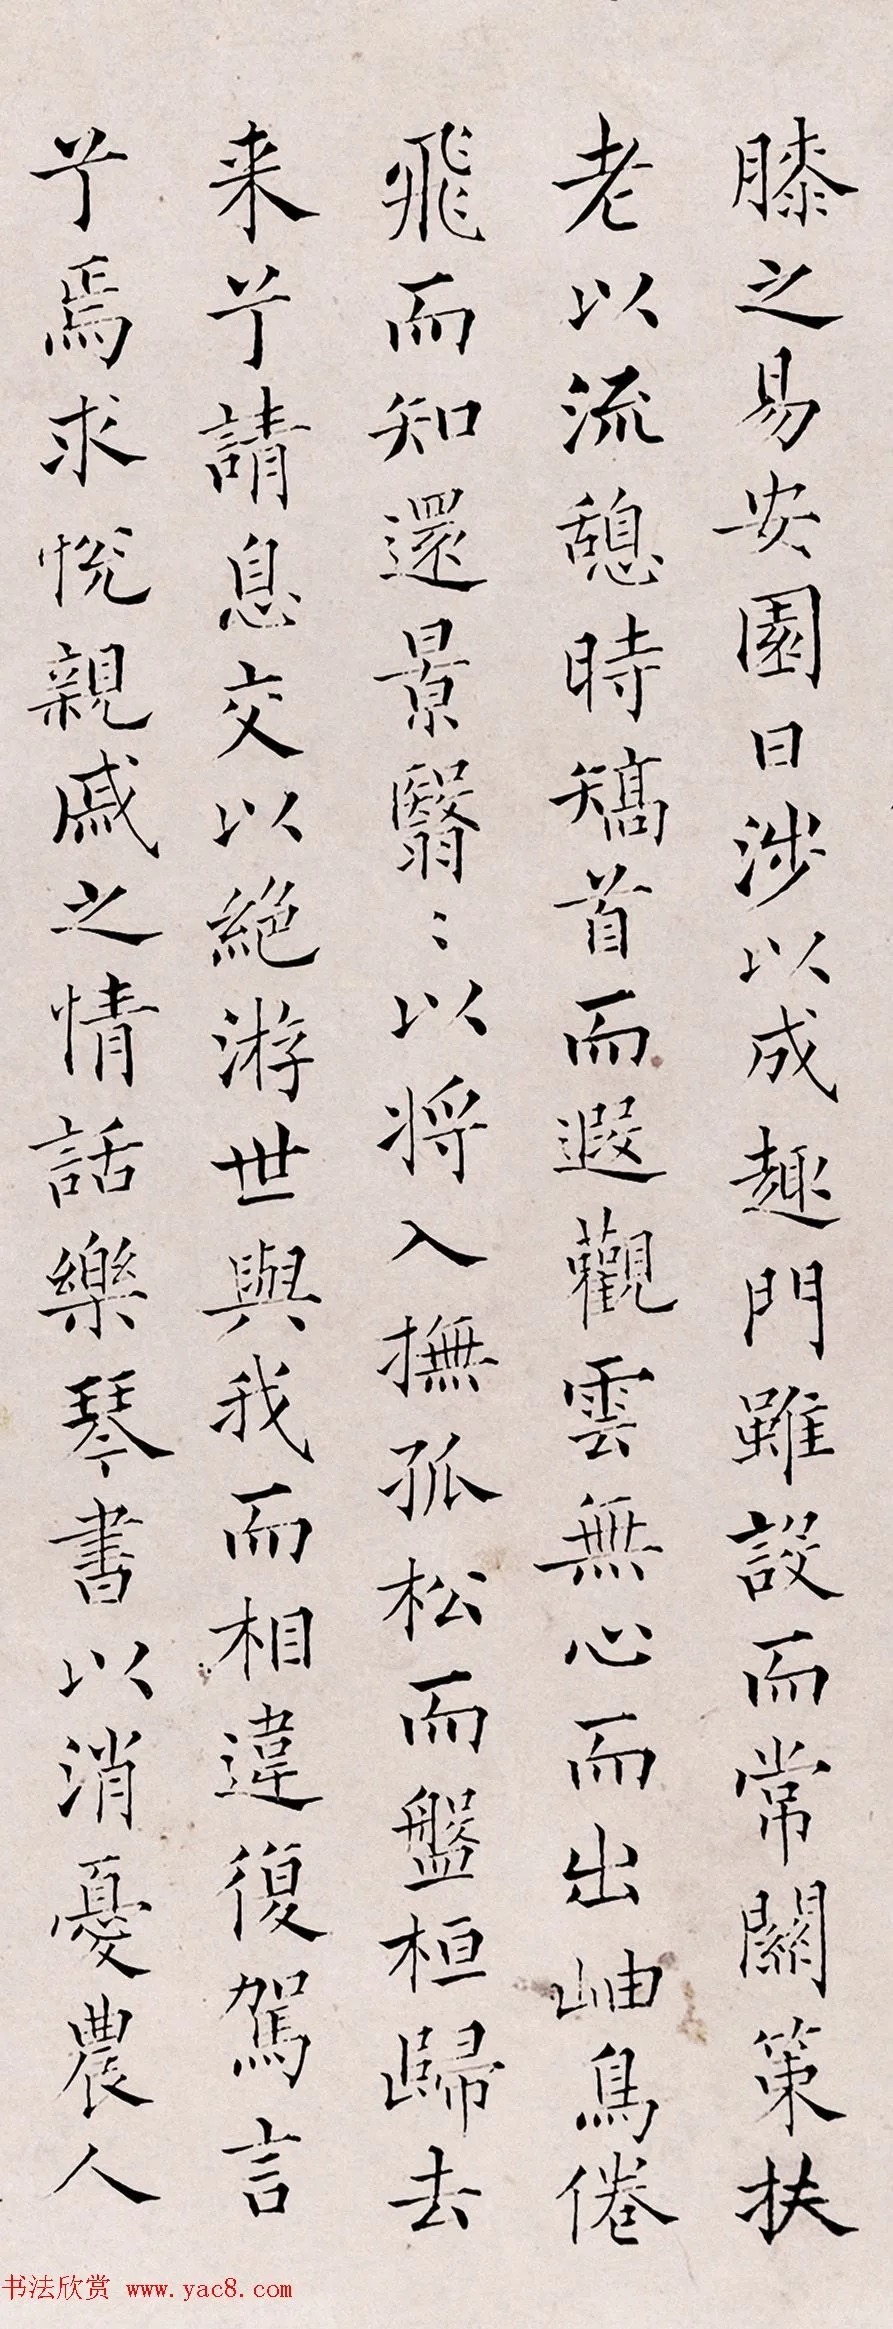 膝之易安園日涉以成趣門雖設而常關策扶
老以流憩時矯首而遐觀雲無心而出岫鳥倦
飛而知還景翳〻以将入撫孤松而盤桓歸去
来兮請息交以絕游世與我而相違復駕言
兮焉求悅親戚之情話樂琴書以消憂農人
书法欣赏 www.yac8.com